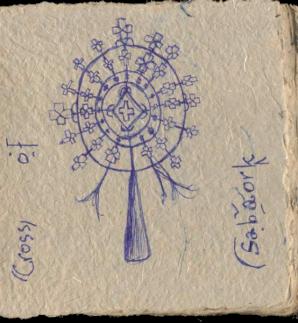 Cross of
Sabäork